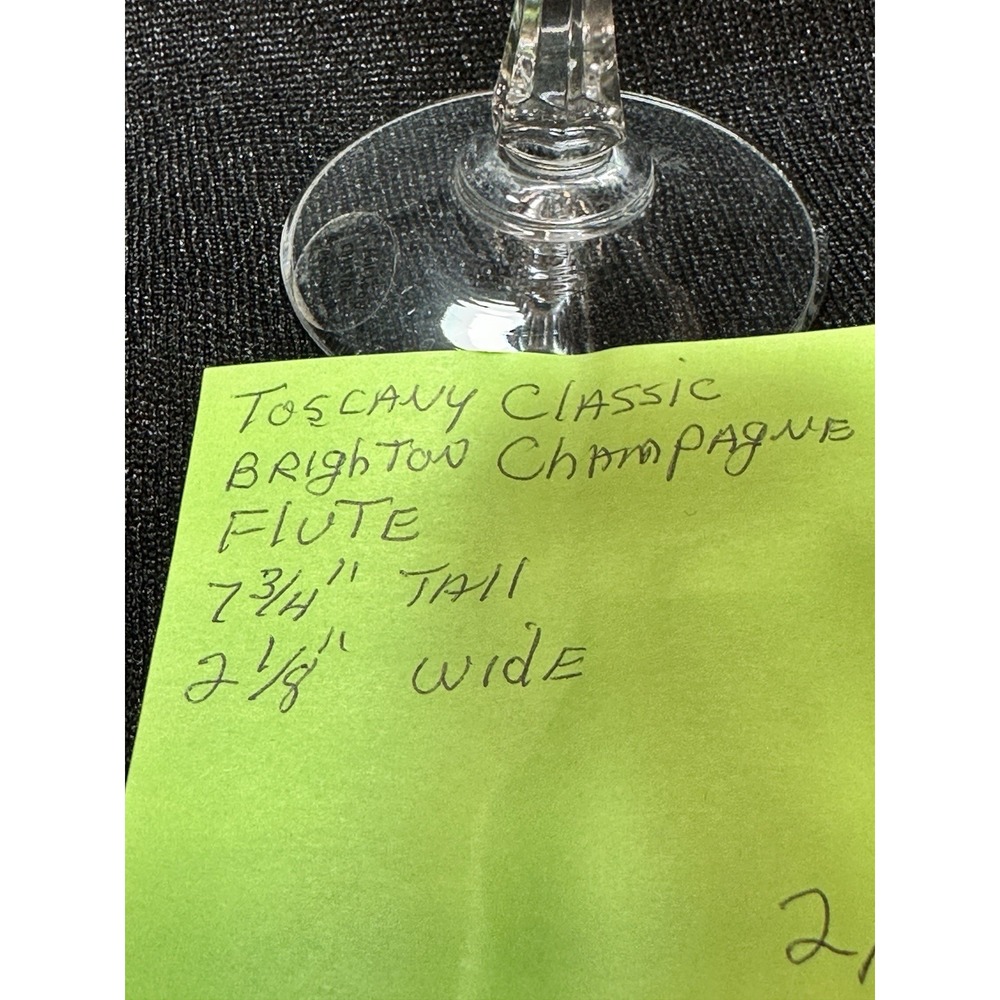 TOSCANY ClASSIC
BRIghTON ChAMPAgNE
FlUTE
7 3/4" TAll
2 1/8" WIdE
2